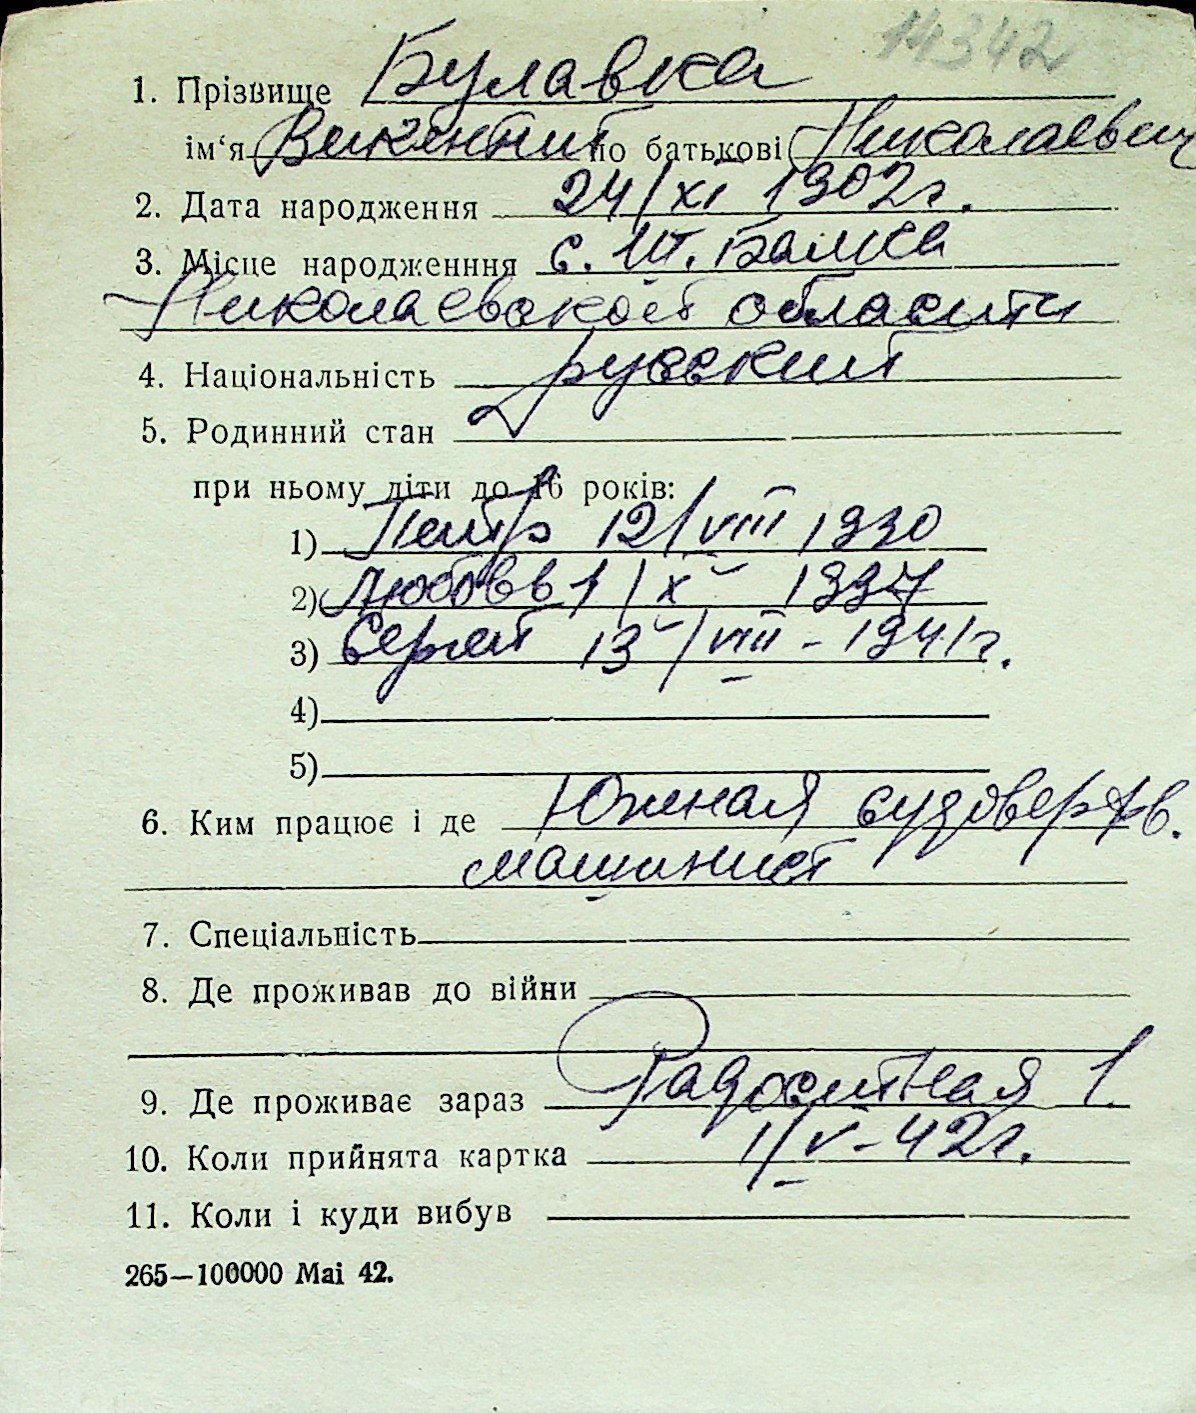 14342
1. Прізвище Булавка
ім‘я Викентий по батькові Николаевич
2. Дата народження 24/XI 1902г.
3. Місце народженння с. Ш. Балка
Николаевской области
4. Національність русский
5. Родинний стан
при ньому діти до 16 років:
1) Петр 12/VIII 1930
2) Любовь 1/X 1937
3) Сергей 13/VIII - 1941г.
4)
5)
6. Ким працює і де Южная судоверфь.
машинист
7. Спеціальність
8. Де проживав до війни
9. Де проживає зараз Радостная 1
10. Коли прийнята картка 1/V-42г.
11. Коли і куди вибув
265—100000 Mai 42.